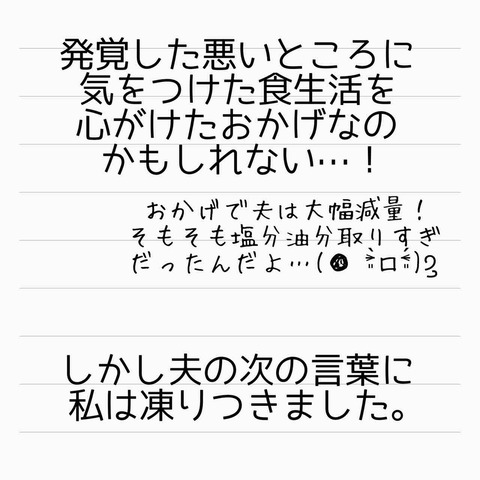 発覚した悪いところに
気をつけた食生活を
心がけたおかげなの
かもしれない…！
おかげで夫は大幅減量！
そもそも塩分油分取りすぎ
だったんだよ…(
しかし夫の次の言葉に
私は凍りつきました。